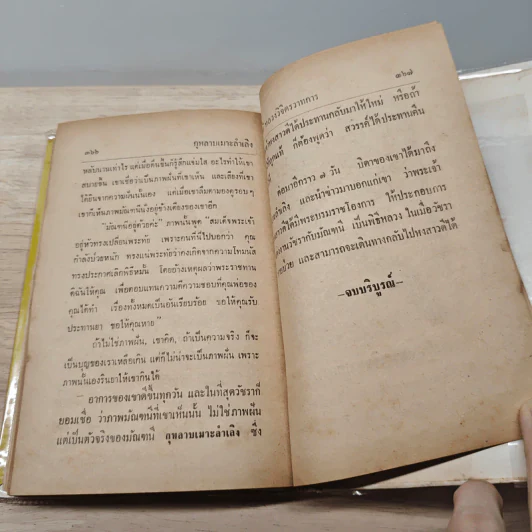 ๓๖๖ กุหลาบเมาะลำเลิง
หลับนานเท่าไร แต่เมื่อตื่นขึ้นก็รู้สึกแจ่มใส อะไรทำให้เขา
สบายขึ้น เขาเชื่อว่าเป็นภาพฝันที่เขาเห็น และเสียงที่เขา
ได้ยินจากความฝันนั้นเอง แต่เมื่อเขาลืมตามองดูรอบ ๆ
เขาก็เห็นภาพมัณฑนีนั่งอยู่ข้างเตียงของเขาอีก
"มัณฑนีอยู่ด้วยค่ะ" ภาพนั้นพูด "สมเด็จพระเจ้า
อยู่หัวทรงเปลี่ยนพระทัย เพราะกนที่นี่ไปบอกว่า คุณ
กำลังป่วยหนัก ทรงแน่พระทัยว่าคงเกิดจากความโทมนัส
ทรงประกาศเลิกพิธีหมั้น โดยอ้างเหตุผลว่าพระราชทาน
ดีฉันให้คุณ เพื่อตอบแทนความดีความชอบที่คุณพ่อของ
คุณได้ทำ เรื่องทั้งหมดเป็นอันเรียบร้อย ขอให้คุณรับ
ประทานยา ขอให้คุณหาย"
ถ้าไม่ใช่ภาพฝัน, เขาคิด, ถ้าเป็นความจริง ก็จะ
เป็นบุญของเราเหลือเกิน แต่ก็ไม่น่าจะเป็นภาพฝัน เพราะ
ภาพนั้นเองรินยาให้เขากินได้
อาการของเขาดีขึ้นทุกวัน และในที่สุดวัชราก็
ยอมเชื่อ ว่าภาพมัณฑนีที่เขาเห็นนั้น ไม่ใช่ภาพฝัน
แต่เป็นตัวจริงของมัณฑนี กุหลาบเมาะลำเลิง ซึ่ง
หลวงวิจิตรวาทการ ๓๖๗
พงสาวดีได้ประทานกลับมาให้ใหม่ หรือถ้า
ก็ต้องพูดว่า สวรรค์ได้ประทานคืน
ต่อมาอีกราว ๗ วัน บิดาของเขาได้มาถึง
และนำข่าวมาบอกแก่เขา ว่าพระเจ้า
ได้มีพระบรมราชโองการ ให้ประกอบการ
วัชรากับมัณฑนี เป็นพิธีหลวง ในเมื่อวัชรา
และสามารถจะเดินทางกลับไปพงสาวดีได้
–จบบริบูรณ์–